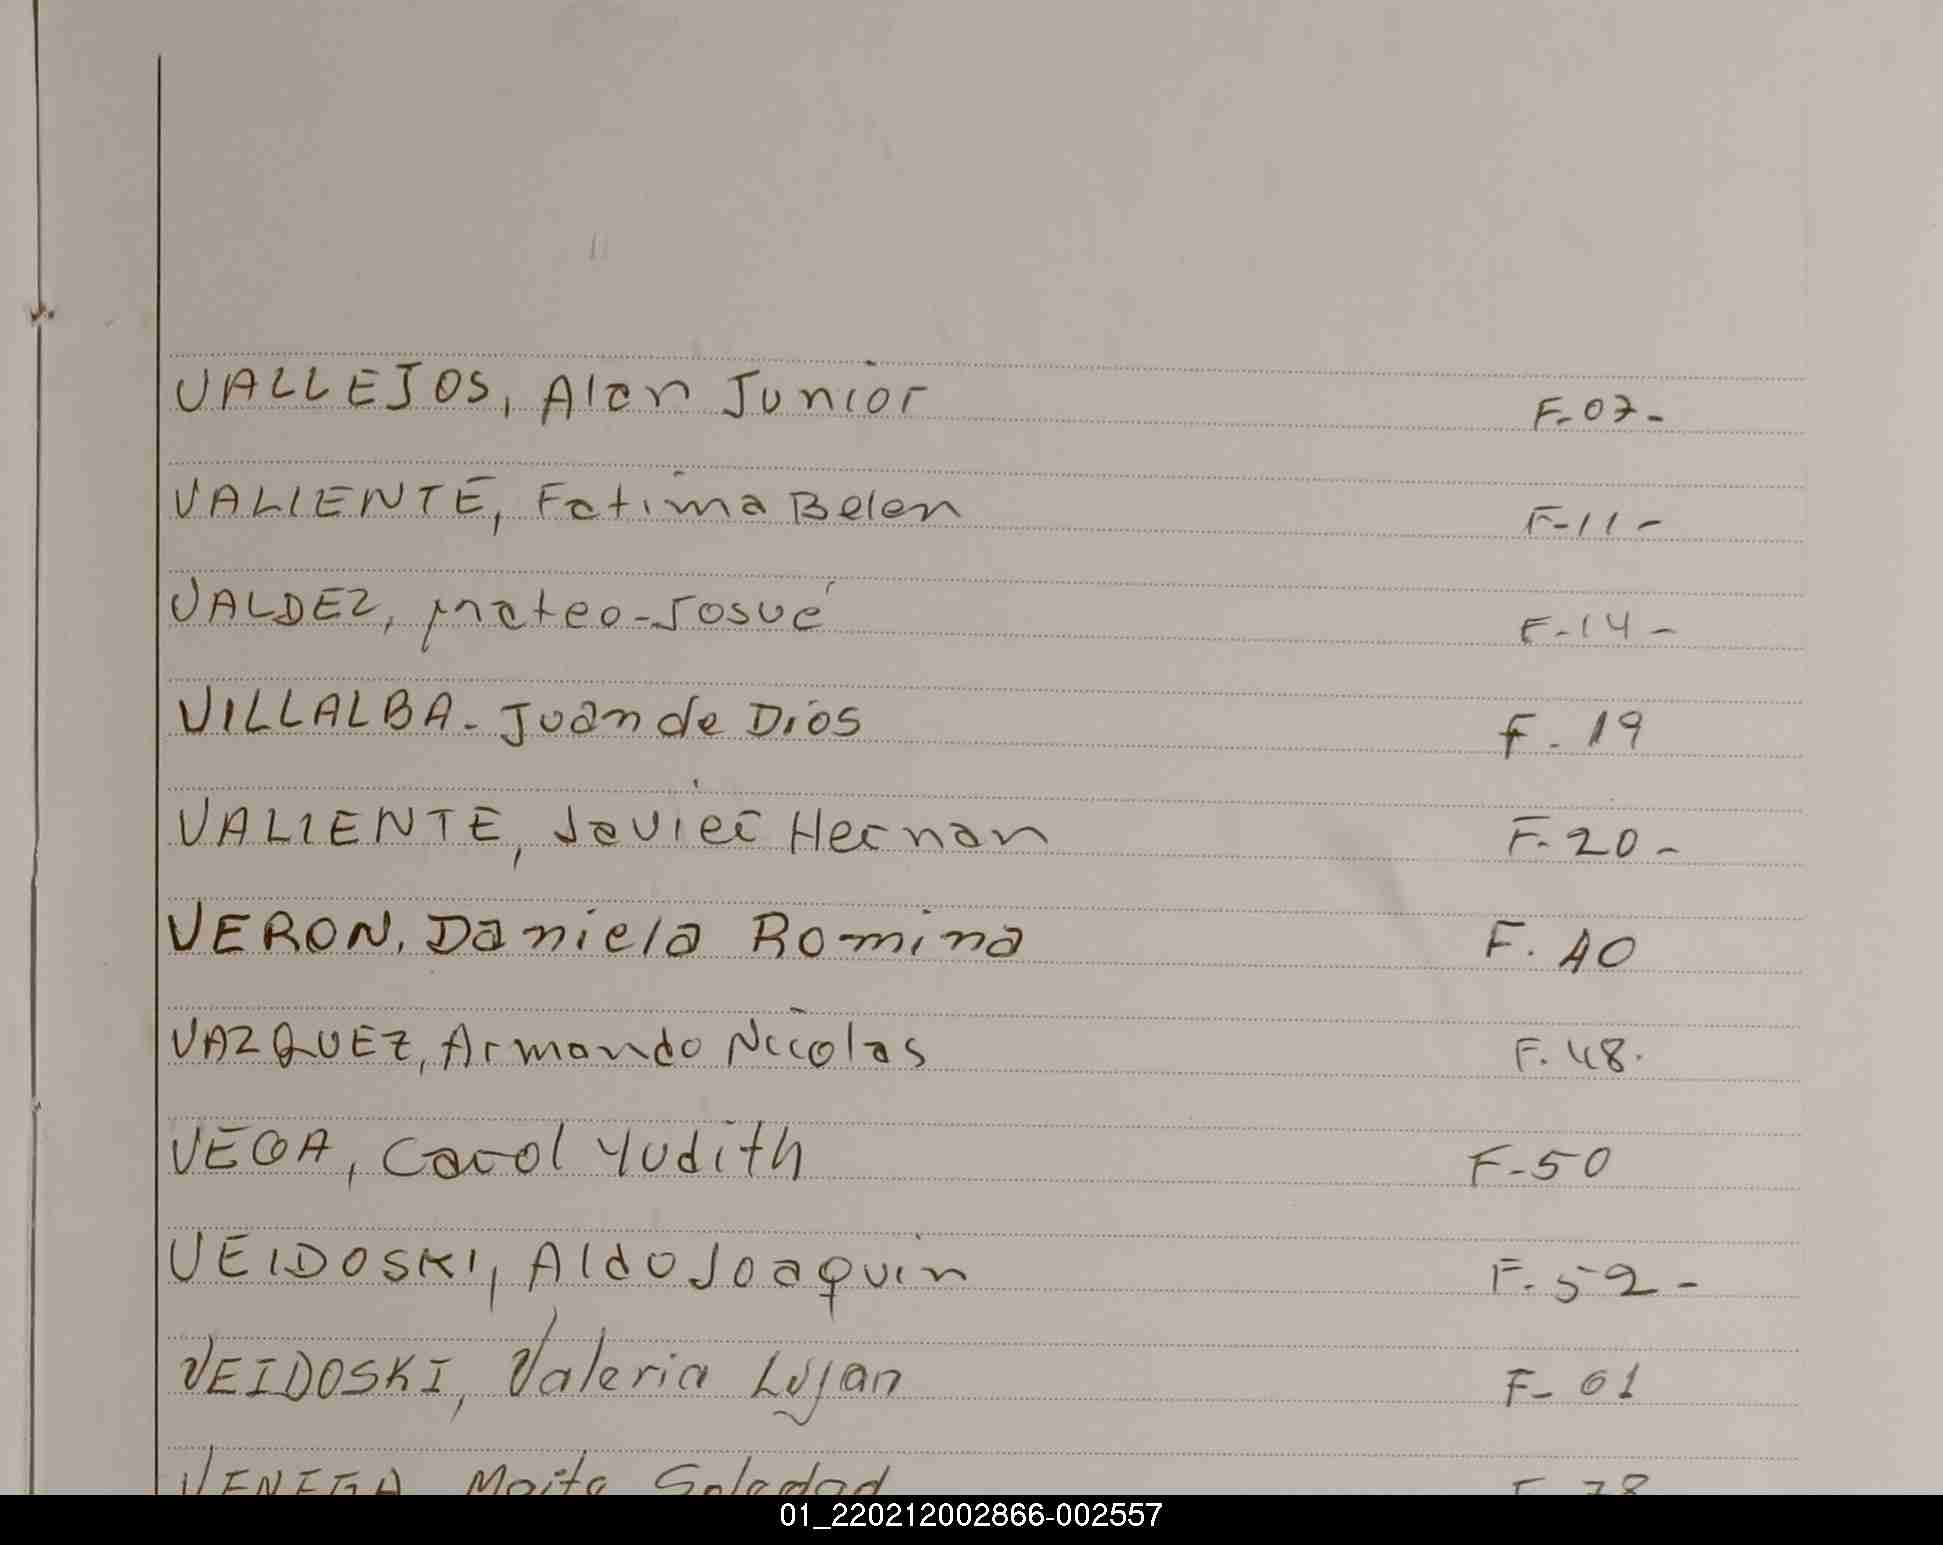 VALLEJOS, Alan Junior F-07-
VALIENTE, Fatima Belen F-11-
VALDEZ, Mateo-Josué F-14-
VILLALBA- Juan de Dios F. 19
VALIENTE, Javier Hernan F. 20-
VERON, Daniela Romina F. 40
VAZQUEZ, Armando Nicolas F. 48.
VEGA, Carol Yudith F-50
VEIDOSKI, Aldo Joaquin F. 52-
VEIDOSKI, Valeria Lujan F- 61
VENEGA Maita Soledad F 78
01_220212002866-002557